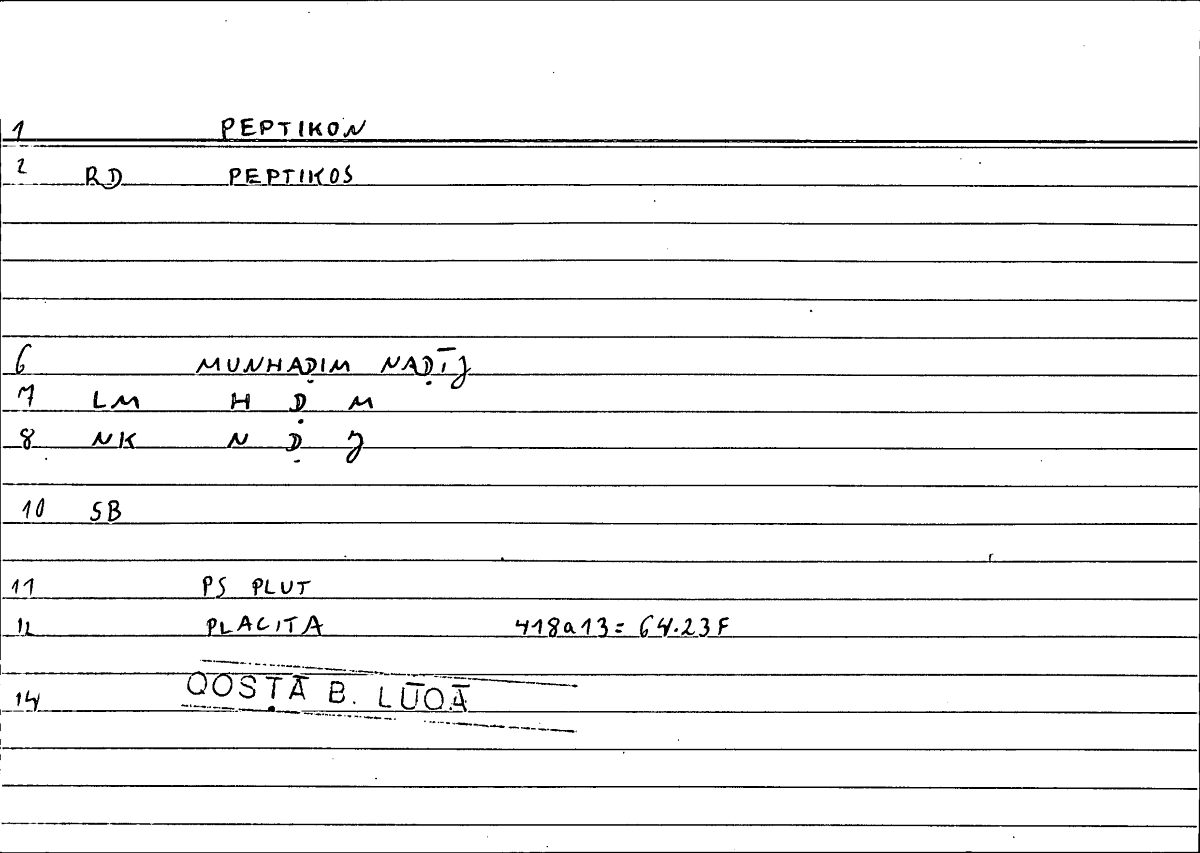 1 PEPTIKON
2 RD PEPTIKOS
6 MUNHAḌIM NAḌĪJ
7 LM H Ḍ M
8 NK N Ḍ J
10 SB
11 PS PLUT
12 PLACITA 418a13= 64.23F
14 QOSṬĀ B. LŪQĀ